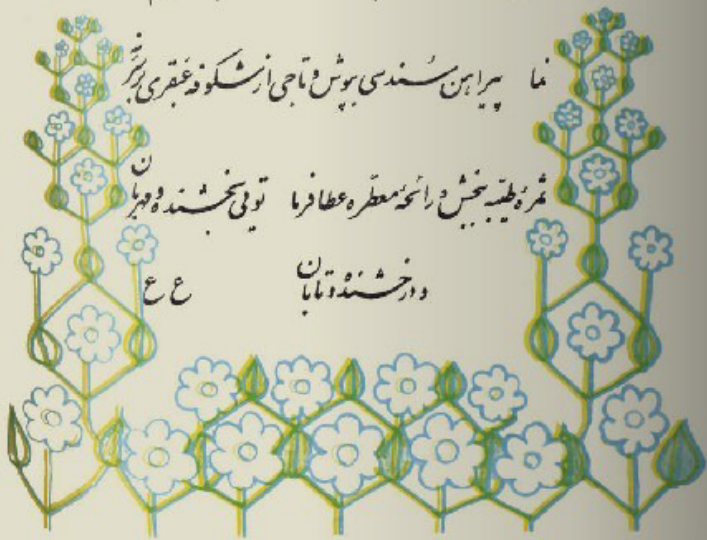 نما پیراهن سُندسی بپوش و تاجی از شکوفه عبقری بر سر نه
ثمرهٔ طیّبه ببخش و رائحهٔ معطّره عطا فرما توئی بخشنده و مهربان
و درخشنده و تابان ع ع